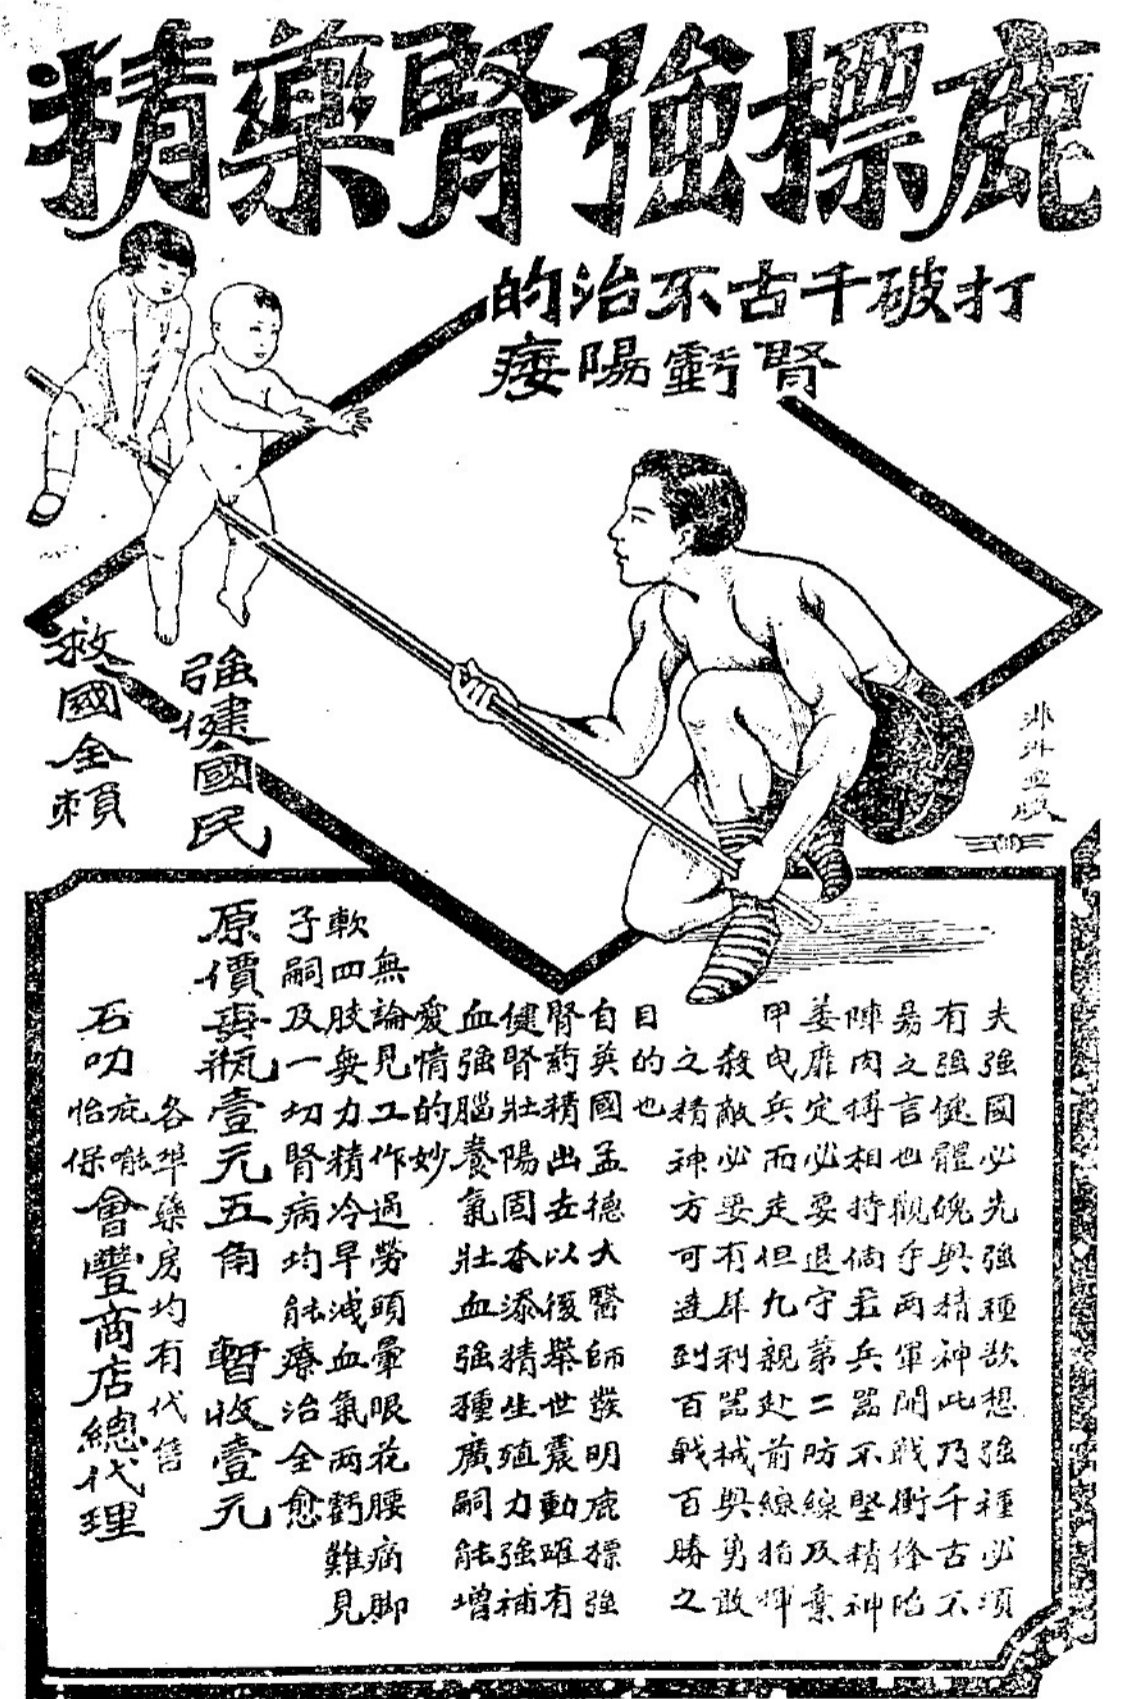 鹿標強腎藥精
打破千古不治的
腎虧陽痿
強健國民
救國全賴
夫強國必先強種欲想強種必須
有強健體魄與精神此乃千古不
易之言也觀乎兩軍開戰衝鋒陷
陣肉搏相持倘若兵器不堅精神
萎靡定必要退守第二防線及棄
甲曳兵而走但凡親赴前線指揮
殺敵必要有犀利器械與勇敢
之精神方可達到百戰百勝之
目的也
自英國孟德大醫師發明鹿標強
腎药精出去以後舉世震動確有
健腎壯陽固本添精生殖力強補
血強腦養氣壯血強種廣嗣能增
愛情的妙
無論見工作過勞頭暈眼花腰痛脚
軟四肢無力精冷早洩血氣两虧難見
子嗣及一切腎病均能療治全愈
原價每瓶壹元五角 暫收壹元
各埠藥房均有代售
石叻庇能怡保會豐商店總代理